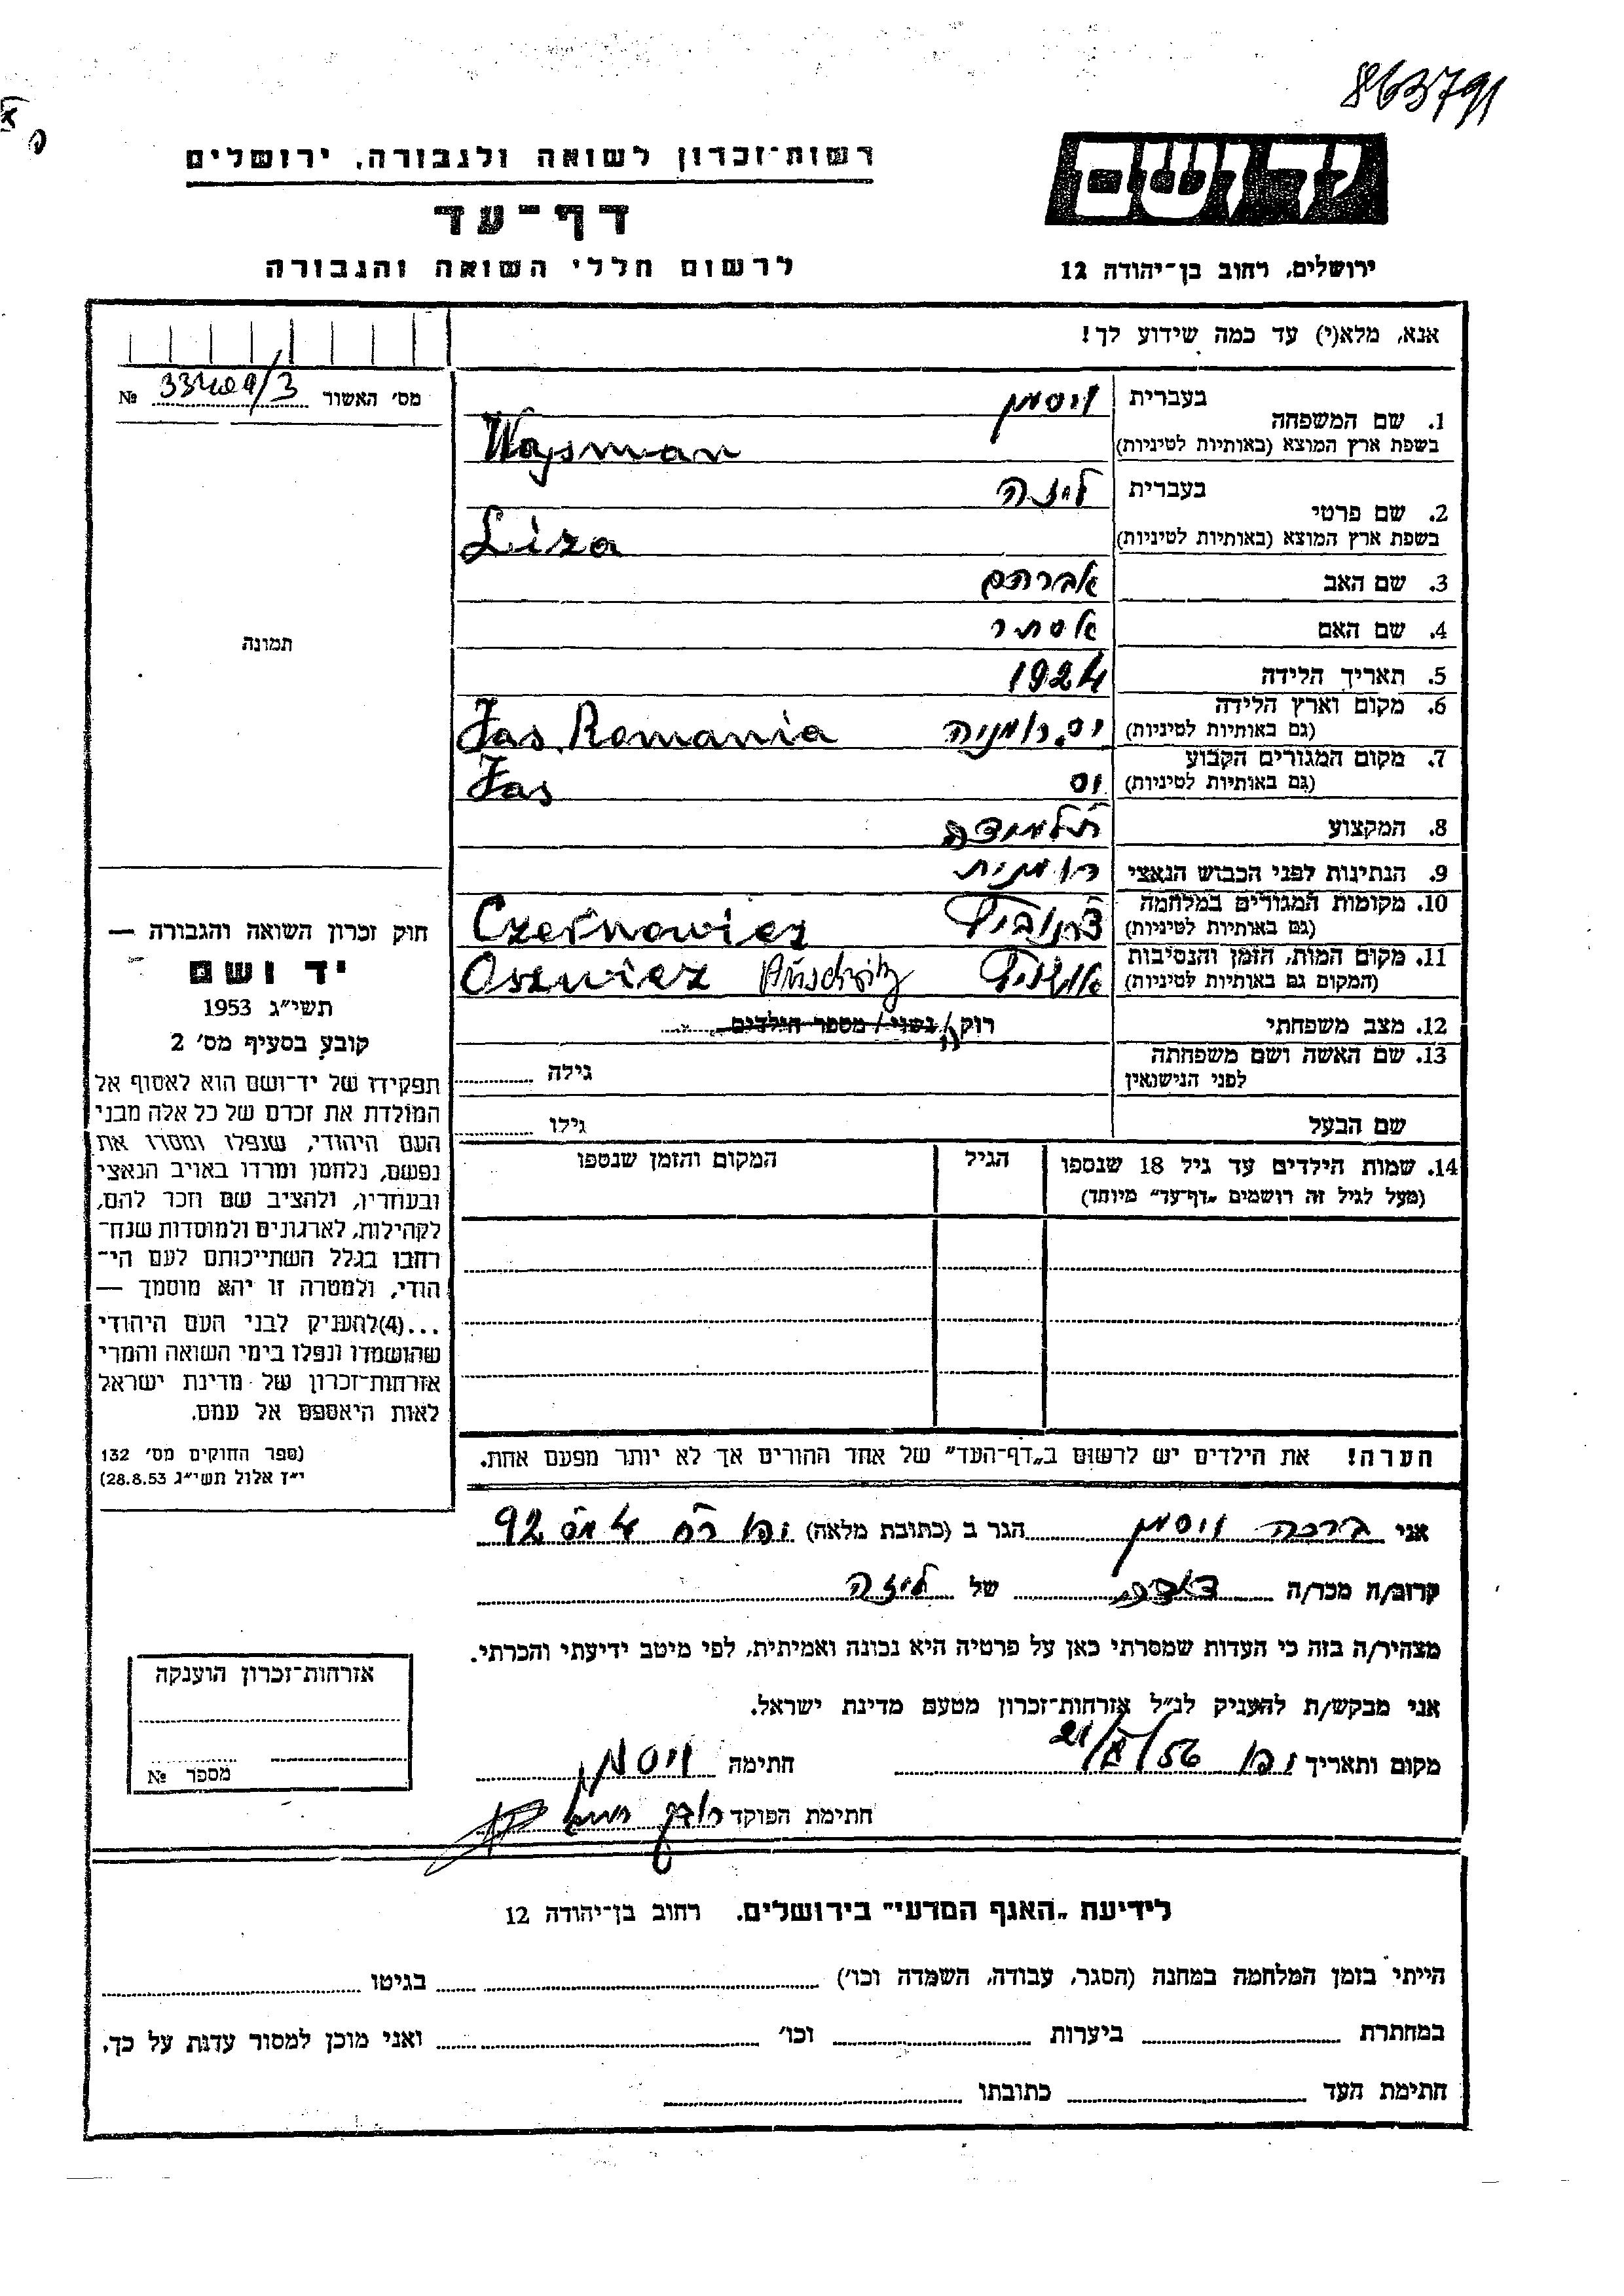 863791
רשות־זכרון לשואה ולגבורה, ירושלים
יד ושם
דף־עד
לרשום חללי השואה והגבורה
ירושלים, רחוב בן־יהודה 12
אנא, מלא(י) עד כמה שידוע לך!
מס׳ האשור №
1. שם המשפחה
בעברית ויסמן
בשפת ארץ המוצא (באותיות לטיניות) Wajsman
2. שם פרטי
בעברית ליזה
בשפת ארץ המוצא (באותיות לטיניות) Liza
3. שם האב אברהם
4. שם האם אסתר
5. תאריך הלידה 1924
6. מקום וארץ הלידה
(גם באותיות לטיניות) יס. רומניה Jas Romania
7. מקום המגורים הקבוע
(גם באותיות לטיניות) יס Jas
8. המקצוע תלמידה
9. הנתינות לפני הכבוש הנאצי רומנית
10. מקומות המגורים במלחמה
(גם באותיות לטיניות) צרנוביץ Czernowicz
11. מקום המות, הזמן והנסיבות
(המקום גם באותיות לטיניות) אושויץ Oswiez Auschwitz
12. מצב משפחתי רוק/ה/ נשוי / מספר הילדים
13. שם האשה ושם משפחתה
לפני הנישואין גילה
שם הבעל גילו
14. שמות הילדים עד גיל 18 שנספו
(מעל לגיל זה רושמים „דף־עד״ מיוחד)
הגיל
המקום והזמן שנספו
הערה! את הילדים יש לרשום ב„דף־העד״ של אחד ההורים אך לא יותר מפעם אחת.
תמונה
חוק זכרון השואה והגבורה —
יד ושם
תשי״ג 1953
קובע בסעיף מס׳ 2
תפקידו של יד־ושם הוא לאסוף אל
המולדת את זכרם של כל אלה מבני
העם היהודי, שנפלו ומסרו את
נפשם, נלחמו ומרדו באויב הנאצי
ובעוזריו, ולהציב שם וזכר להם,
לקהילות, לארגונים ולמוסדות שנח־
רבו בגלל השתייכותם לעם הי־
הודי, ולמטרה זו יהא מוסמך —
...(4) להעניק לבני העם היהודי
שהושמדו ונפלו בימי השואה והמרי
אזרחות־זכרון של מדינת ישראל
לאות היאספם אל עמם.
(ספר החוקים מס׳ 132
י״ז אלול תשי״ג 28.8.53)
אני ברכה ויסמן הגר ב (כתובת מלאה) יפו רח 4 מס 92
קרוב/ה מכר/ה דודה של ליזה
מצהיר/ה בזה כי העדות שמסרתי כאן על פרטיה היא נכונה ואמיתית, לפי מיטב ידיעתי והכרתי.
אני מבקש/ת להעניק לנ״ל אזרחות־זכרון מטעם מדינת ישראל.
מקום ותאריך יפו חתימה ויסמן
חתימת הפוקד
אזרחות־זכרון הוענקה
מספר №
לידיעת „האגף המדעי״ בירושלים. רחוב בן־יהודה 12
הייתי בזמן המלחמה במחנה (הסגר, עבודה, השמדה וכו׳) בגיטו
במחתרת ביערות וכו׳ ואני מוכן למסור עדות על כך.
חתימת העד כתובתו